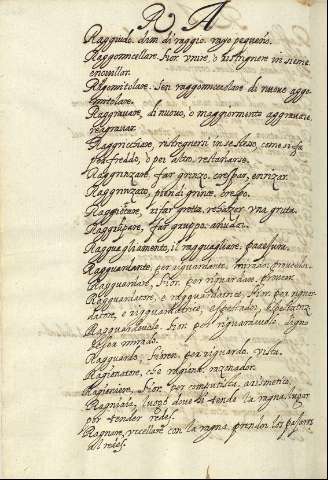 R A
Raggiudo. dim. di raggio. rayo pequeño.
Raggomicellare. fior. unire, o ristrignere insieme
enovillar.
Ragomitolare. Sen. raggomicellare di nuovo aggo-
mitolare.
Raggravare, di nuovo, o maggiormente aggravare,
reagravar.
Raggricchiare, ristrignersi in se stesso, come si fa
per freddo, o per altro,
Raggrinzare, far grinze, crespar, enrizar.
Raggrinzato, pien di grinze, crespo.
Raggrottare, rifar grotta, rehazer una gruta.
Raggruppare, far gruppo. anudar.
Ragguagliamento, il ragguagliare,
Ragguardante, per riguardante,
Ragguardare, fior. per riguardare.
Ragguardatore, e ragguardatrice, fior. per riguar-
datore, e riguardatrice,
Ragguardevole. fior. per riguardevole. digno
de ser mirado.
Ragguardo, fioren. per riguardo, vista.
Ragionatore, che ragiona, razonador.
Ragioniere, fior. per computista, arismetico.
Ragnaia, luogo dove si tende la ragna, lugar
por tender redes.
Ragnare, uccellare con la ragna. prender los paxaros
al redes.